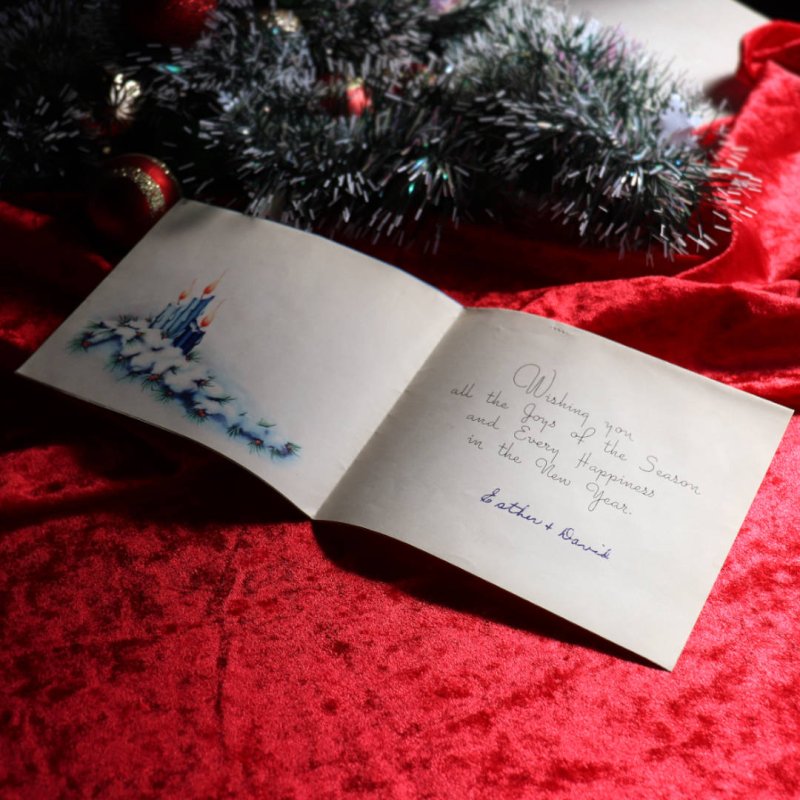 Wishing you
all the Joys of the Season
and Every Happiness
in the New Year.
Esther + David